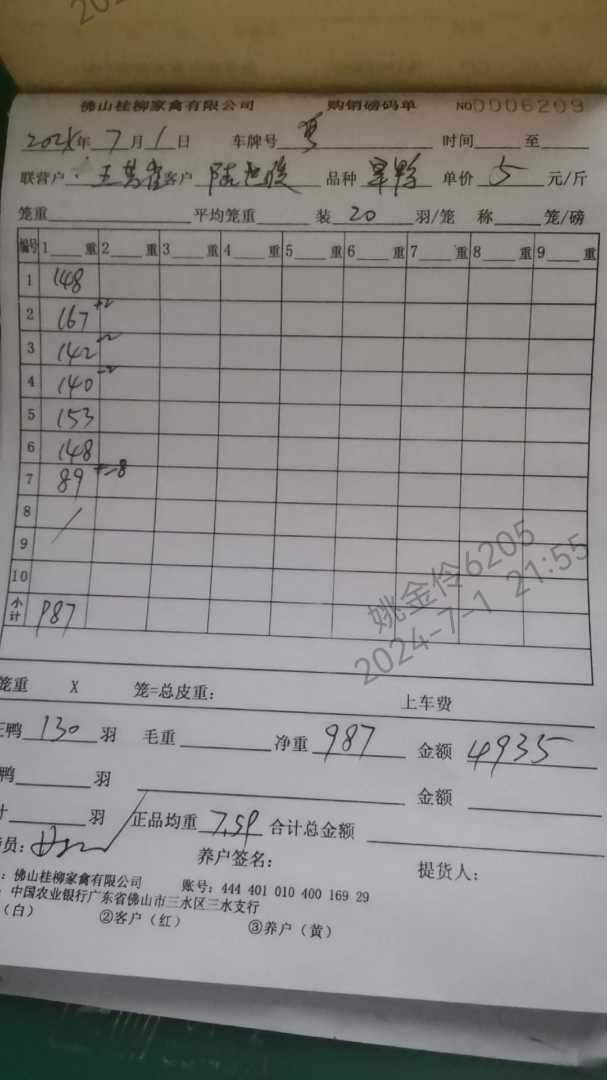 佛山桂柳家禽有限公司 购销磅码单 NO 0006209
2024年 7 月 1 日 车牌号 时间 至
联营户: 王 客户 陆 品种 单价 5 元/斤
笼重 平均笼重 装 20 羽/笼 称 笼/磅
编号 1 重 2 重 3 重 4 重 5 重 6 重 7 重 8 重 9 重
1 148
2 167 +2
3 142 -2
4 140 -2
5 153
6 148
7 89 -8
8 /
9
10
小计 987
笼重 X 笼=总皮重: 上车费
正鸭 130 羽 毛重 净重 987 金额 4935
鸭 羽 金额
计 羽 正品均重 7.59 合计总金额
员: 养户签名: 提货人:
: 佛山桂柳家禽有限公司 账号: 444 401 010 400 169 29
: 中国农业银行广东省佛山市三水区三水支行
(白) ②客户(红) ③养户(黄)
姚金伶6205
2024-7-1 21:55